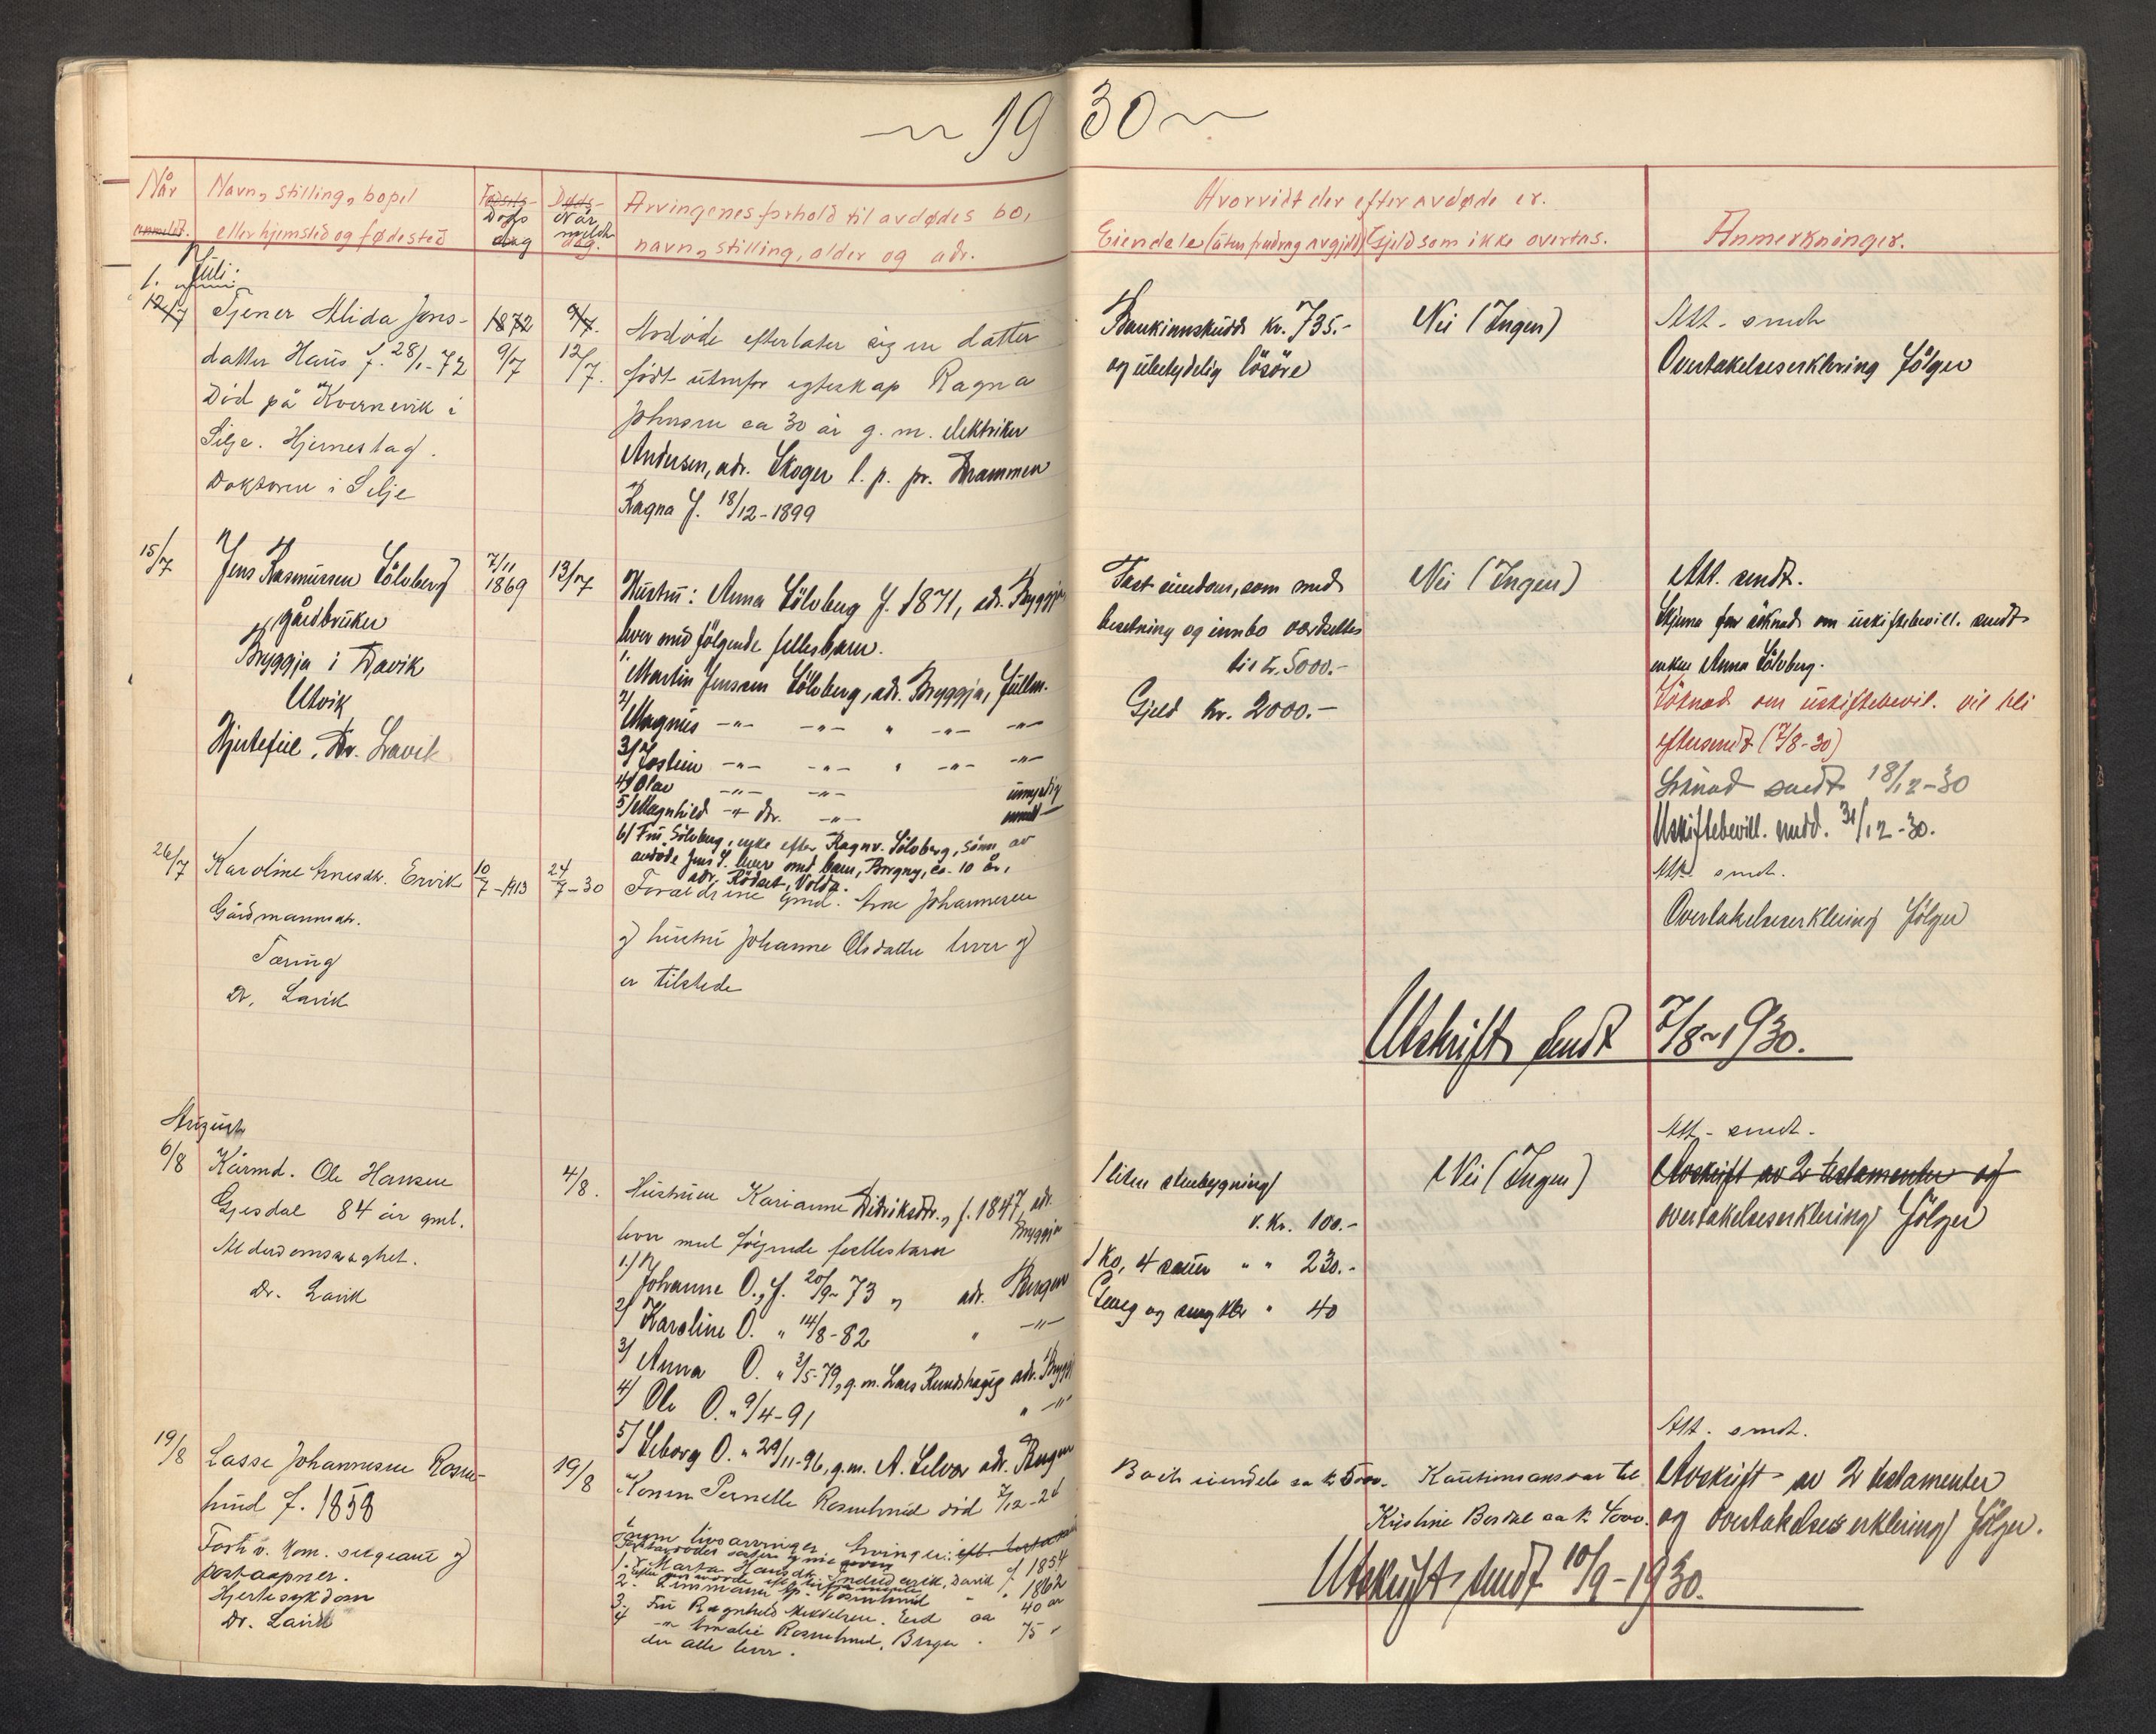 ~ 19 30 ~
Når anmeldt.
Navn, stilling, bopel
eller hjemsted og fødested
Fødsels-
Døds
dag
Døds-
Når
meldt
dag.
Arvingenes forhold til avdødes bo,
navn, stilling, alder og adr.
Hvorvidt der efter avdøde er.
Eiendele (uten fradrag av gjeld)
Gjeld som ikke overtas.
Anmerkninger.
Juli:
12/7
Tjener Alida Jons-
datter Haus f. 28/1-72
Död på Kvernevik i
Selje. Hjerneslag.
Doktoren i Selje
1872
9/7
9/7.
12/7.
Avdöde efterlater sig en datter
födt utenfor egteskap Ragna
Johnsen ca 30 år g. m. elektriker
Andersen, adr. Skoger l. p. pr. Drammen
Ragna f. 18/12-1899
Bankinnskudd kr. 735.-
og ubetydelig lösöre
Nei (Ingen)
Att. sendt
Overtakelseserklering fölger
15/7
Jens Rasmussen Sölvberg
gårdbruker
Bryggja i Davik
Utvik
Hjertefeil. Dr. Lavik
7/11
1869
13/7
Hustru: Anna Sölvberg f. 1871, adr. Bryggja
lever med fölgende fellesbarn.
1. Martin Jenssen Sölvberg, adr. Bryggja, fullm.
2/ Magnus -"- -"- " -"- -"-
3/ Jostein -"- -"- " -"- -"-
4/ Olav -"- -"- umyndig
5/ Magnhild -"- dtr. -"-
6/ Fru Sölvberg, enke efter Ragnv. Sölvberg, sönn av
avdöde Jens S. lever med barn, Borgny, ca. 10 år,
adr. Rödset, Volda.
Fast eiendom, som med
besetning og innbo verdsettes
til kr. 5000.-
Gjeld kr. 2000.-
Nei (Ingen)
Att. sendt.
Skjema for söknad om uskiftebevill. sendt
enken Anna Sölvberg.
Söknad om uskiftebevil. vil bli
eftersendt (7/8-30)
Söknad sendt 18/12-30
Uskiftebevill. medd. 31/12-30.
26/7
Karoline Arnesdtr. Ervik
Gårdmannsdtr.
Tæring
Dr. Lavik
10/7-1913
24/7-30
Foreldrene gmd. Arne Johannesen
og hustru Johanne Olsdatter lever og
er tilstede
Att. sendt.
Overtakelseserklering fölger
Utskrift sendt 7/8-1930.
August
6/8
Kårmd. Ole Hansen
Gjesdal 84 år gml.
Alderdomsvaghet.
Dr. Lavik
4/8.
Hustruen Karianne Didriksdtr., f. 1847, adr.
Bryggja
lever med fölgende fellesbarn
1.) Johanne O., f. 20/9-73 " adr. Bergen
2/ Karoline O. " 14/8-82 " -"-
3/ Anna O. " 3/5-79, g.m. Lars Rundshaug adr. Bryggja
4/ Ole O. " 9/4-91 " -"-
5/ Seborg O. " 29/11-96, g.m. A. Selvor adr. Bergen
1 liten stuebygning
v. kr. 100.-
1 ko, 4 sauer " " 230.-
Seng og sengklær " 40
Nei (Ingen)
Att. sendt.
Avskrift av 2 testamenter og
overtakelseserklering fölger
19/8
Lasse Johannesen Rosen-
lund f. 1858
Forh.v. kom. sergeant og
postaapner.
Hjertesykdom
Dr. Lavik
19/8
Konen Pernelle Rosenlund död 7/12-24
Ingen livsarvinger. Arvinger:
1. Marta Hansdtr. Indrevik, Davik f. 1854
2. " 1862
3. Fru Ragnhild Mikkelsen. Eid ca 40 år
4 -"- Amalie Rosenlund, Bergen . 75 "
der alle lever.
Boets eiendele ca kr 5000.
Kautionsansvar til
Kristine Berdal ca kr 4000.
Att. sendt.
Avskrift av 2 testamenter
og overtakelseserklering fölger.
Utskrift sendt 10/9-1930.